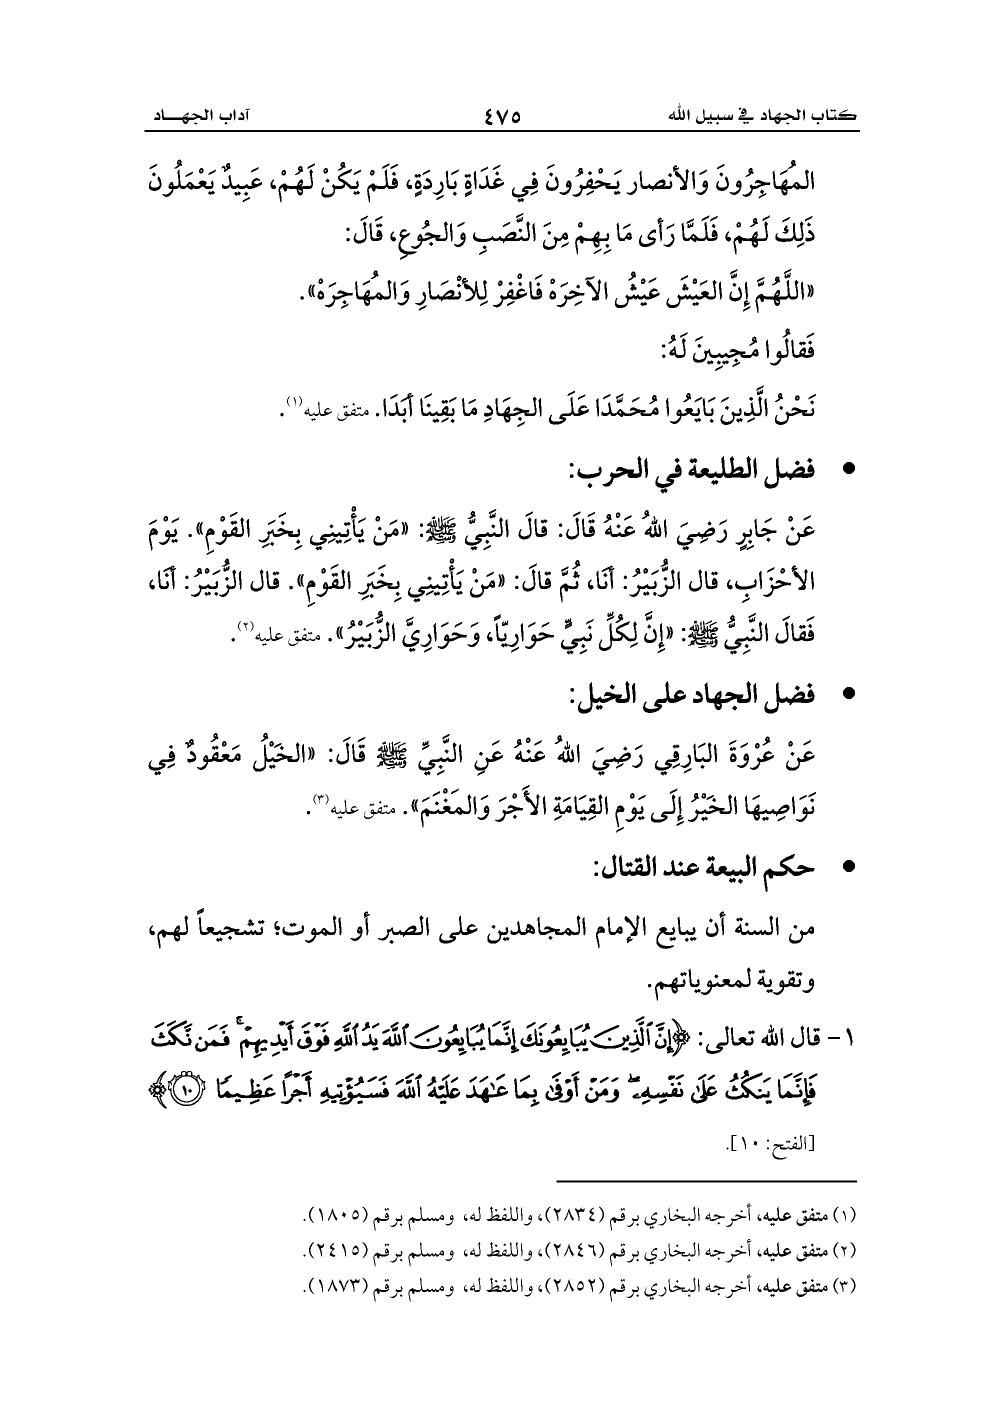 كتاب الجهاد في سبيل الله ٤٧٥ آداب الجهـــاد
المُهَاجِرُونَ وَالأنصار يَحْفِرُونَ فِي غَدَاةٍ بَارِدَةٍ، فَلَمْ يَكُنْ لَهُمْ، عَبِيدٌ يَعْمَلُونَ
ذَلِكَ لَهُمْ، فَلَمَّا رَأى مَا بِهِمْ مِنَ النَّصَبِ وَالجُوعِ، قَالَ:
«اللَّهُمَّ إِنَّ العَيْشَ عَيْشُ الآخِرَهْ فَاغْفِرْ لِلأنْصَارِ وَالمُهَاجِرَهْ».
فَقالُوا مُجِيبِينَ لَهُ:
نَحْنُ الَّذِينَ بَايَعُوا مُحَمَّدَا عَلَى الجِهَادِ مَا بَقِينَا أبَدَا. متفق عليه(١).
• فضل الطليعة في الحرب:
عَنْ جَابِرٍ رَضِيَ اللهُ عَنْهُ قَالَ: قالَ النَّبِيُّ ﷺ: «مَنْ يَأْتِينِي بِخَبَرِ القَوْمِ». يَوْمَ
الأحْزَابِ، قال الزُّبَيْرُ: أنَا، ثُمَّ قالَ: «مَنْ يَأْتِينِي بِخَبَرِ القَوْمِ». قال الزُّبَيْرُ: أنَا،
فَقالَ النَّبِيُّ ﷺ: «إِنَّ لِكُلِّ نَبِيٍّ حَوَارِيّاً، وَحَوَارِيَّ الزُّبَيْرُ». متفق عليه(٢).
• فضل الجهاد على الخيل:
عَنْ عُرْوَةَ البَارِقِي رَضِيَ اللهُ عَنْهُ عَنِ النَّبِيِّ ﷺ قَالَ: «الخَيْلُ مَعْقُودٌ فِي
نَوَاصِيهَا الخَيْرُ إِلَى يَوْمِ القِيَامَةِ الأَجْرَ وَالمَغْنَمَ». متفق عليه(٣).
• حكم البيعة عند القتال:
من السنة أن يبايع الإمام المجاهدين على الصبر أو الموت؛ تشجيعاً لهم،
وتقوية لمعنوياتهم.
١- قال الله تعالى: ﴿إِنَّ ٱلَّذِينَ يُبَايِعُونَكَ إِنَّمَا يُبَايِعُونَ ٱللَّهَ يَدُ ٱللَّهِ فَوْقَ أَيْدِيهِمْ ۚ فَمَن نَّكَثَ
فَإِنَّمَا يَنكُثُ عَلَىٰ نَفْسِهِۦ ۖ وَمَنْ أَوْفَىٰ بِمَا عَـٰهَدَ عَلَيْهُ ٱللَّهَ فَسَيُؤْتِيهِ أَجْرًا عَظِيمًا ۝١٠﴾
[الفتح: ١٠].
(١) متفق عليه، أخرجه البخاري برقم (٢٨٣٤)، واللفظ له، ومسلم برقم (١٨٠٥).
(٢) متفق عليه، أخرجه البخاري برقم (٢٨٤٦)، واللفظ له، ومسلم برقم (٢٤١٥).
(٣) متفق عليه، أخرجه البخاري برقم (٢٨٥٢)، واللفظ له، ومسلم برقم (١٨٧٣).